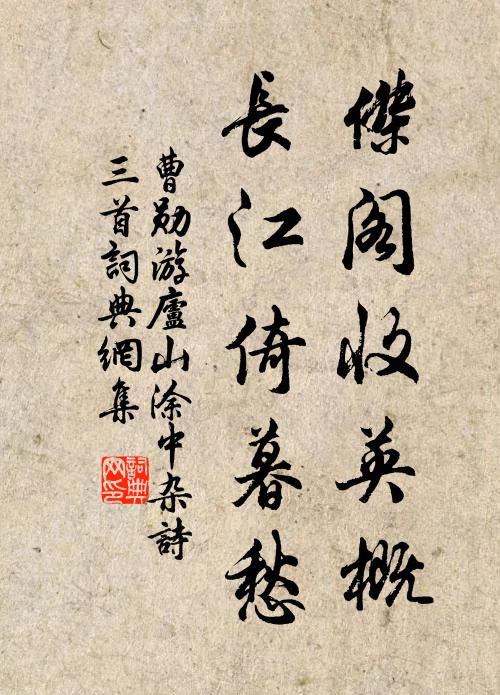 傑阁收英概
長江倚暮愁
曹勋游廬山涂中杂詩
三首詞典網集
詞典网印